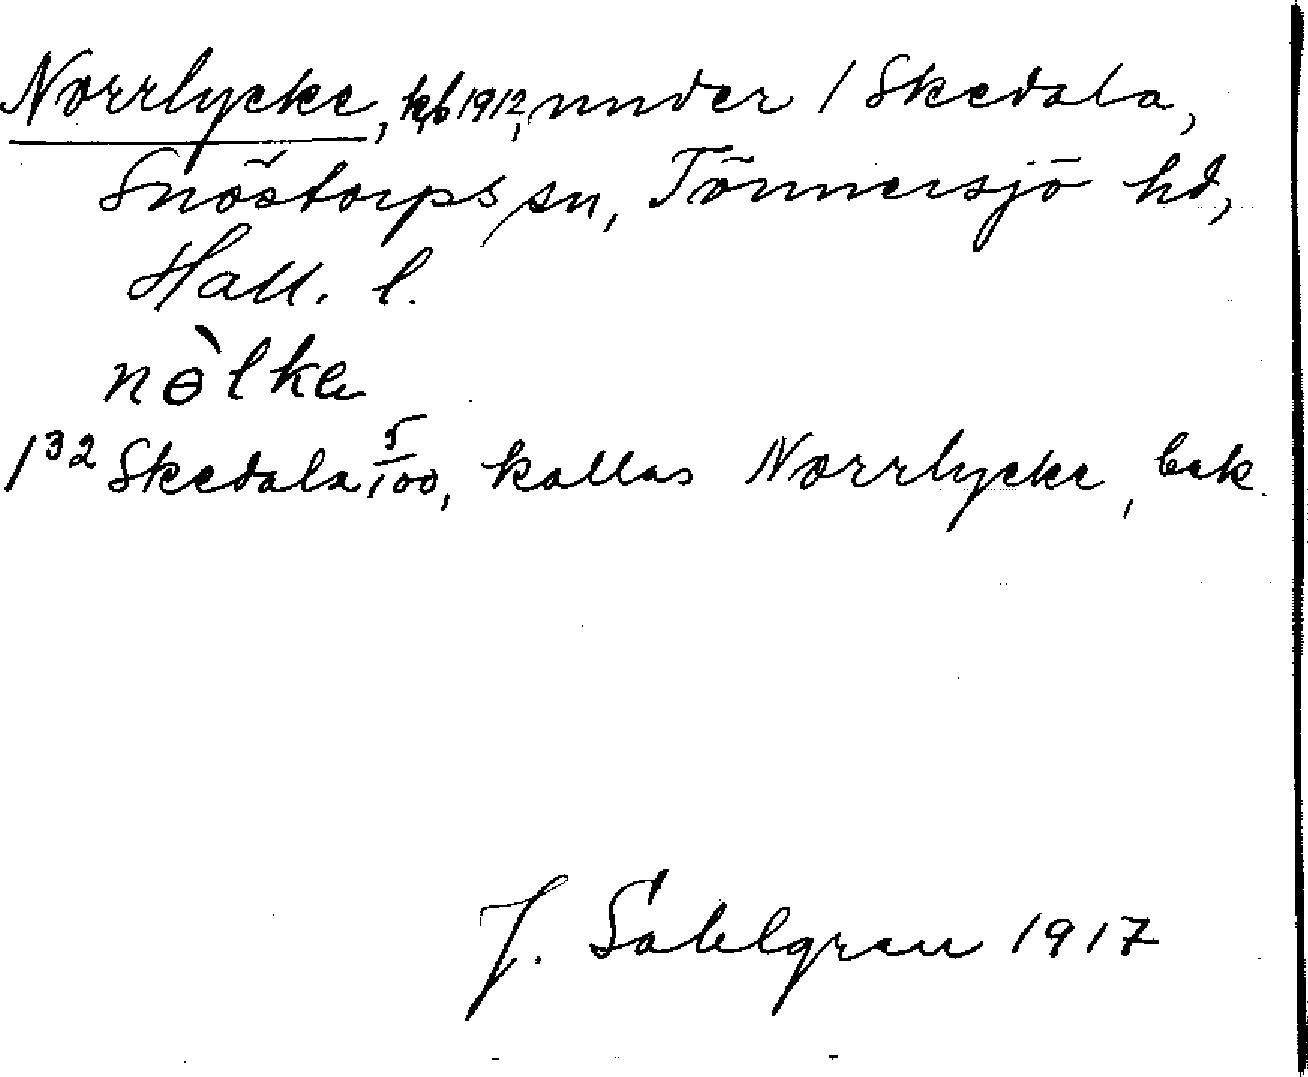 Norrlycke, kb 1912, under 1 Skedala,
Snöstorps sn, Tönnersjö hd,
Hall. l.
nɵ̀lka
1³² Skedala 5/100, kallas Norrlycke, bek.
J. Sahlgren 1917